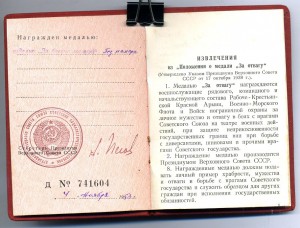 Награжден медалью:
Секретарь Президиума
Верховного Совета СССР
Д № 741604
ИЗВЛЕЧЕНИЯ
из „Положения о медали „За отвагу"
(Утверждено Указом Президиума Верховного Совета
СССР от 17 октября 1938 г.)
1. Медалью „За отвагу" награждаются
военнослужащие рядового, командного и
начальствующего состава Рабоче-Крестьян-
ской Красной Армии, Военно-Морского
Флота и Войск пограничной охраны за
личное мужество и отвагу в боях с врагами
Советского Союза на театре военных дей-
ствий, при защите неприкосновенности
государственных границ или при борьбе с
диверсантами, шпионами и прочими врага-
ми Советского государства.
2. Награждение медалью производится
Президиумом Верховного Совета СССР.
8. Награжденные медалью должны по-
давать личный пример храбрости, мужества
и отваги в борьбе с врагами Советского
государства и служить образцом для других
граждан при исполнении государственных
обязанностей.